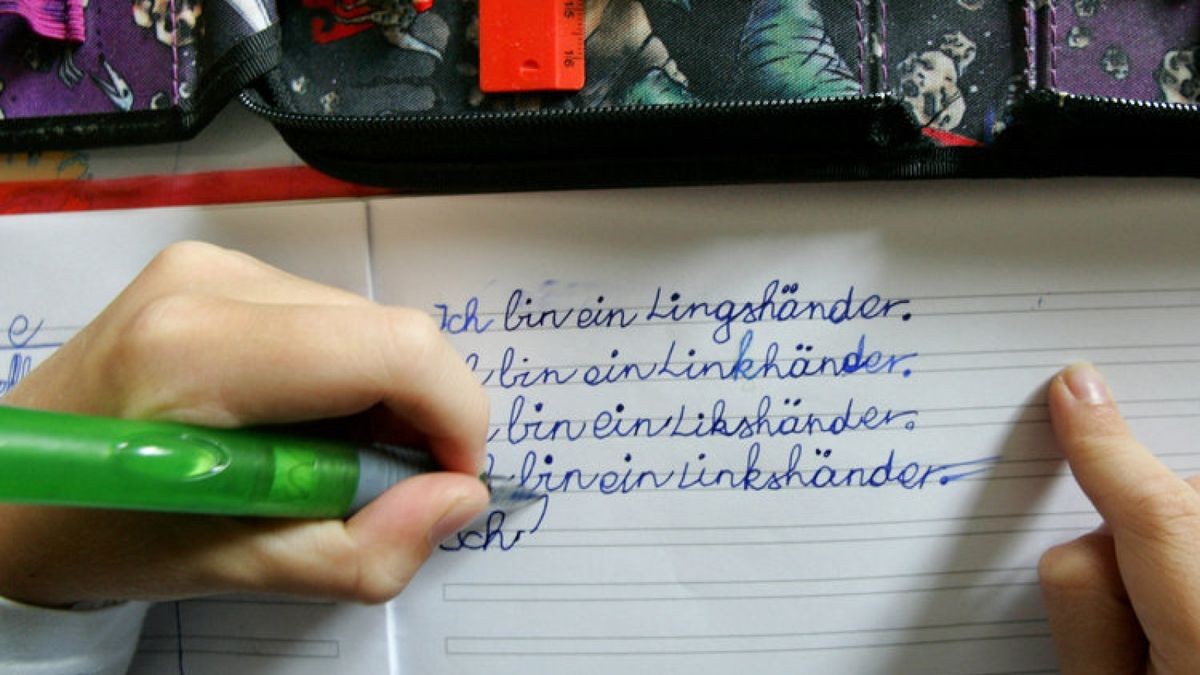 Ich bin ein Lingshänder.
bin ein Linkhänder.
bin ein Likshänder.
bin ein Linkshänder.
Ich
e
15
16